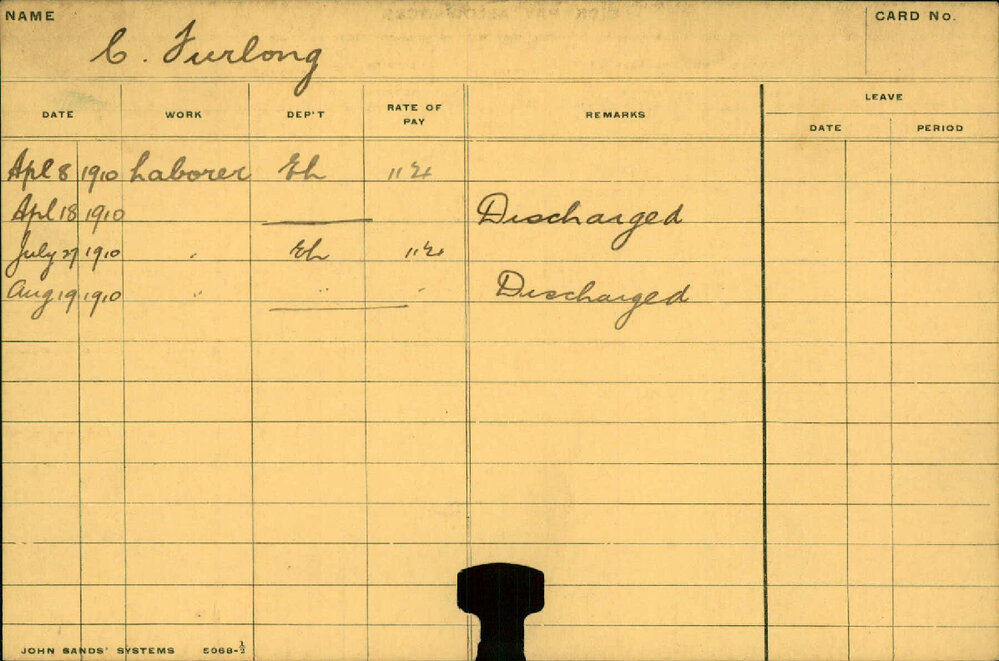 NAME C. Furlong CARD No.
DATE WORK DEP'T RATE OF PAY REMARKS LEAVE
DATE PERIOD
Apl 8 1910 Laborer Eh
Apl 18 1910 Discharged
July 27 1910 " Eh
Aug 19 1910 " " " Discharged
JOHN SANDS' SYSTEMS 5068-½